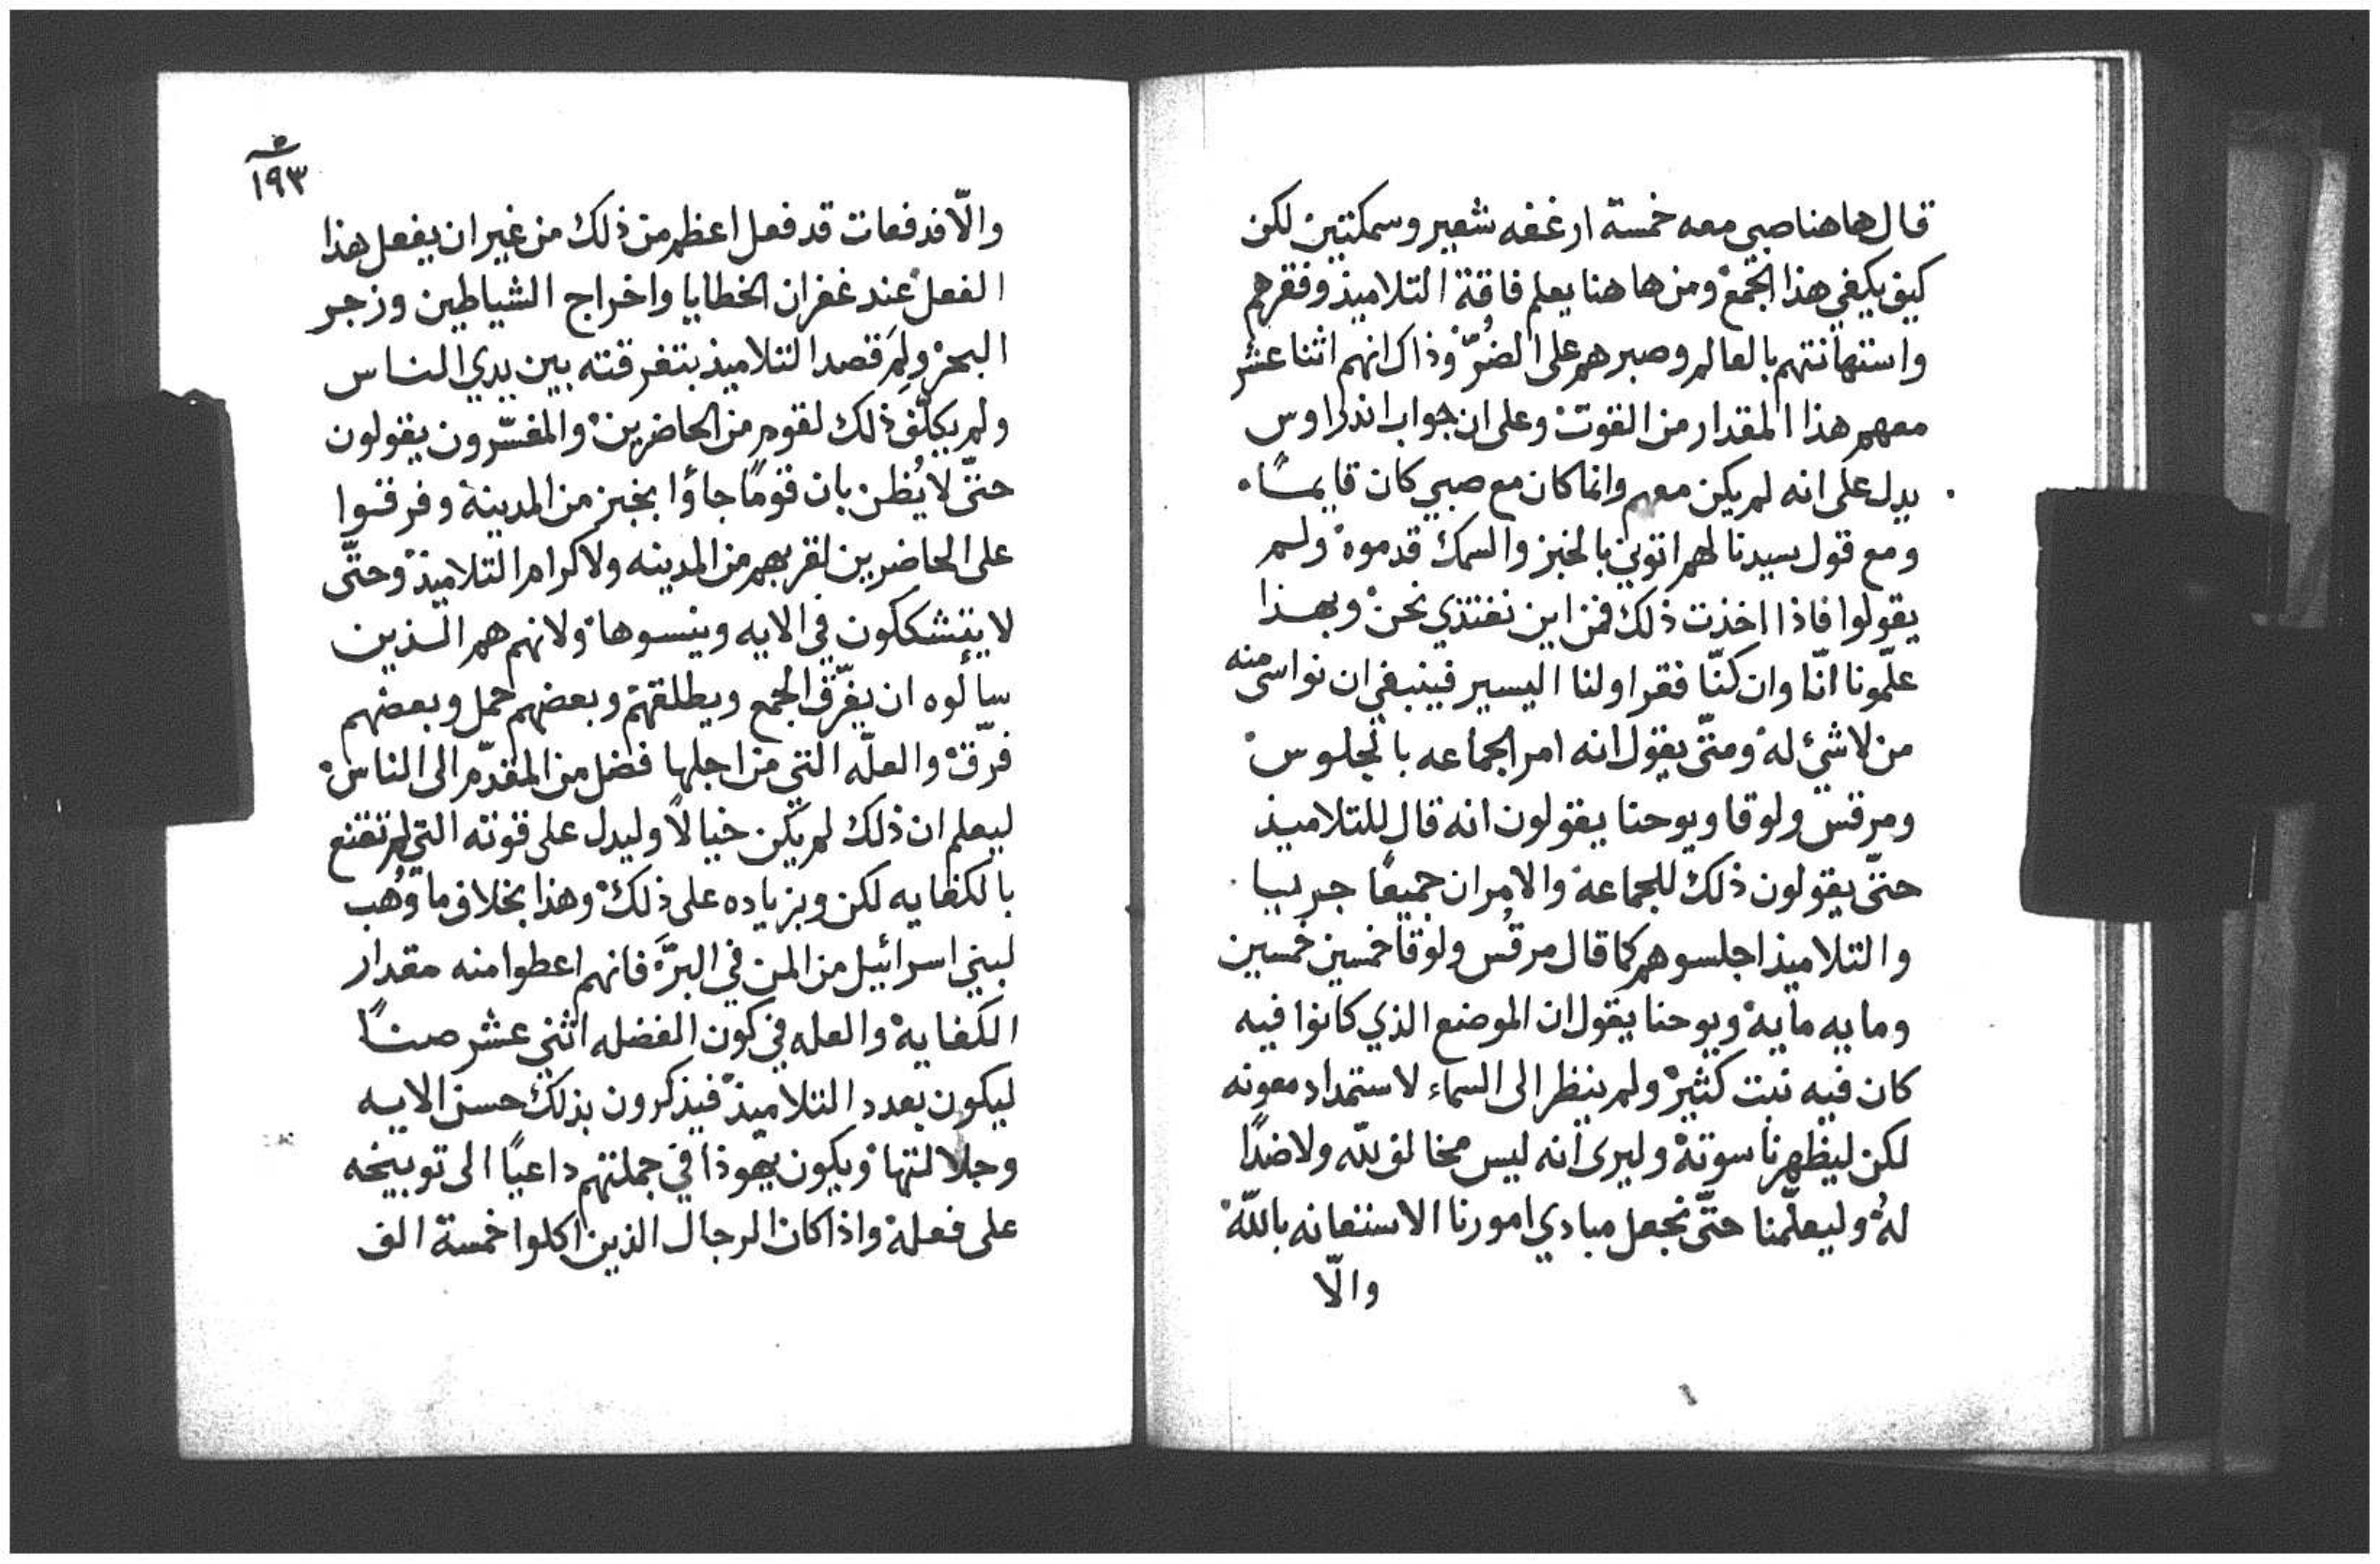 قال هاهنا صبي معه خمسة ارغفه شعير وسمكتين لكن
كيف يكفي هذا الجمع ومن هاهنا يعلم فاقة التلاميذ وفقرهم
واستهانتهم بالعالم وصبرهم على الضُرّ وذاك انهم اثنا عشر
معهم هذا المقدار من القوت وعلى ان جواب اندراوس
يدل على انه لم يكن معهم وانما كان مع صبي كان قايمًا
ومع قول سيدنا لهم اتوني بالخبز والسمك قدموه ولم
يقولوا فاذا اخذت ذلك فمن اين نغتذي نحن وبهذا
علّمونا انّا وان كنّا فقرا ولنا اليسير فينبغي ان نواسي منه
من لا شيء له ومتى يقول انه امر الجماعه بالجلوس
ومرقس ولوقا ويوحنا يقولون انه قال للتلاميذ
حتّى يقولون ذلك للجماعة والامران جميعًا جريا
والتلاميذ اجلسوهم كما قال مرقُس ولوقا خمسين خمسين
ومايه مايه ويوحنا يقول ان الموضع الذي كانوا فيه
كان فيه نبت كثير ولم ينظر الى السماء لاستمداد معونه
لكن ليظهر ناسوته وليرى انه ليس مخالف لله ولا ضدًا
لهُ وليعلّمنا حتّى نجعل مبادي امورنا الاستعانه بالله
والّا
١٩٣
والّا فدفعات قد فعل اعظم من ذلك من غير ان يفعل هذا
الفعل عند غفران الخطايا واخراج الشياطين وزجر
البحر ولِمَ قصد التلاميذ بتفرقته بين يدي الناس
ولم يكلّف ذلك لقوم من الحاضرين والمفسّرون يقولون
حتّى لا يُظن بان قومًا جاؤا بخبز من المدينة وفرقوا
على الحاضرين لقربهم من المدينه ولاكرام التلاميذ وحتّى
لا يتشككون في الايه وينسوها ولانهم هم الذين
سألوه ان يفرّق الجمع ويطلقهم وبعضهم حمل وبعضهم
فرّق والعلّه التي من اجلها فضل من المقدّم الى الناس
ليعلم ان ذلك لم يكن خيالًا وليدل على قوته التي لم تقنع
بالكفايه لكن وبزياده على ذلك وهذا بخلاف ما وُهب
لبني اسرائيل من المن في البرّ فانهم اعطوا منه مقدار
الكفاية والعله في كون الفضله اثني عشر صنًا
ليكون بعدد التلاميذ فيذكرون بذلك حسن الايه
وجلالتها ويكون يهوذا في جملتهم داعيًا الى توبيخه
على فعله واذا كان الرجال الذين اكلوا خمسة الف